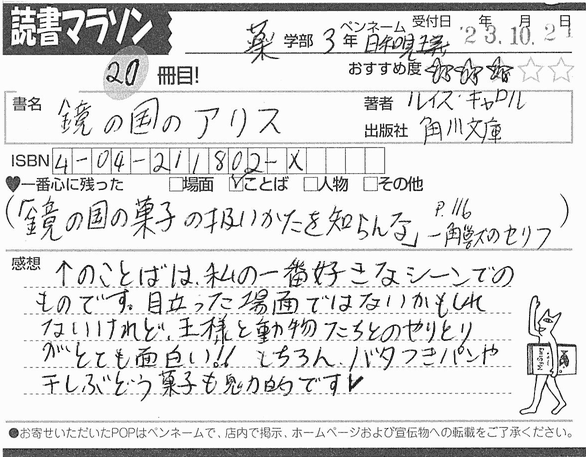 読書マラソン
薬 学部 3 年 ペンネーム 受付日 '23.10.27 年 月 日
20 冊目! おすすめ度 ☆☆☆☆☆
書名 鏡の国のアリス 著者 ルイス・キャロル
出版社 角川文庫
ISBN 4-04-211802-X
♥一番心に残った □場面 ☑ことば □人物 □その他
(「鏡の国の菓子の扱いかたを知らんな」 P.116 一角獣のセリフ)
感想 ↑のことばは、私の一番好きなシーンでの
ものです。目立った場面ではないかもしれ
ないけれど、王様と動物たちとのやりとり
がとても面白い!! もちろん、バタつきパンや
干しぶどう菓子も魅力的です♥
●お寄せいただいたPOPはペンネームで、店内で掲示、ホームページおよび宣伝物への転載をご了承ください。